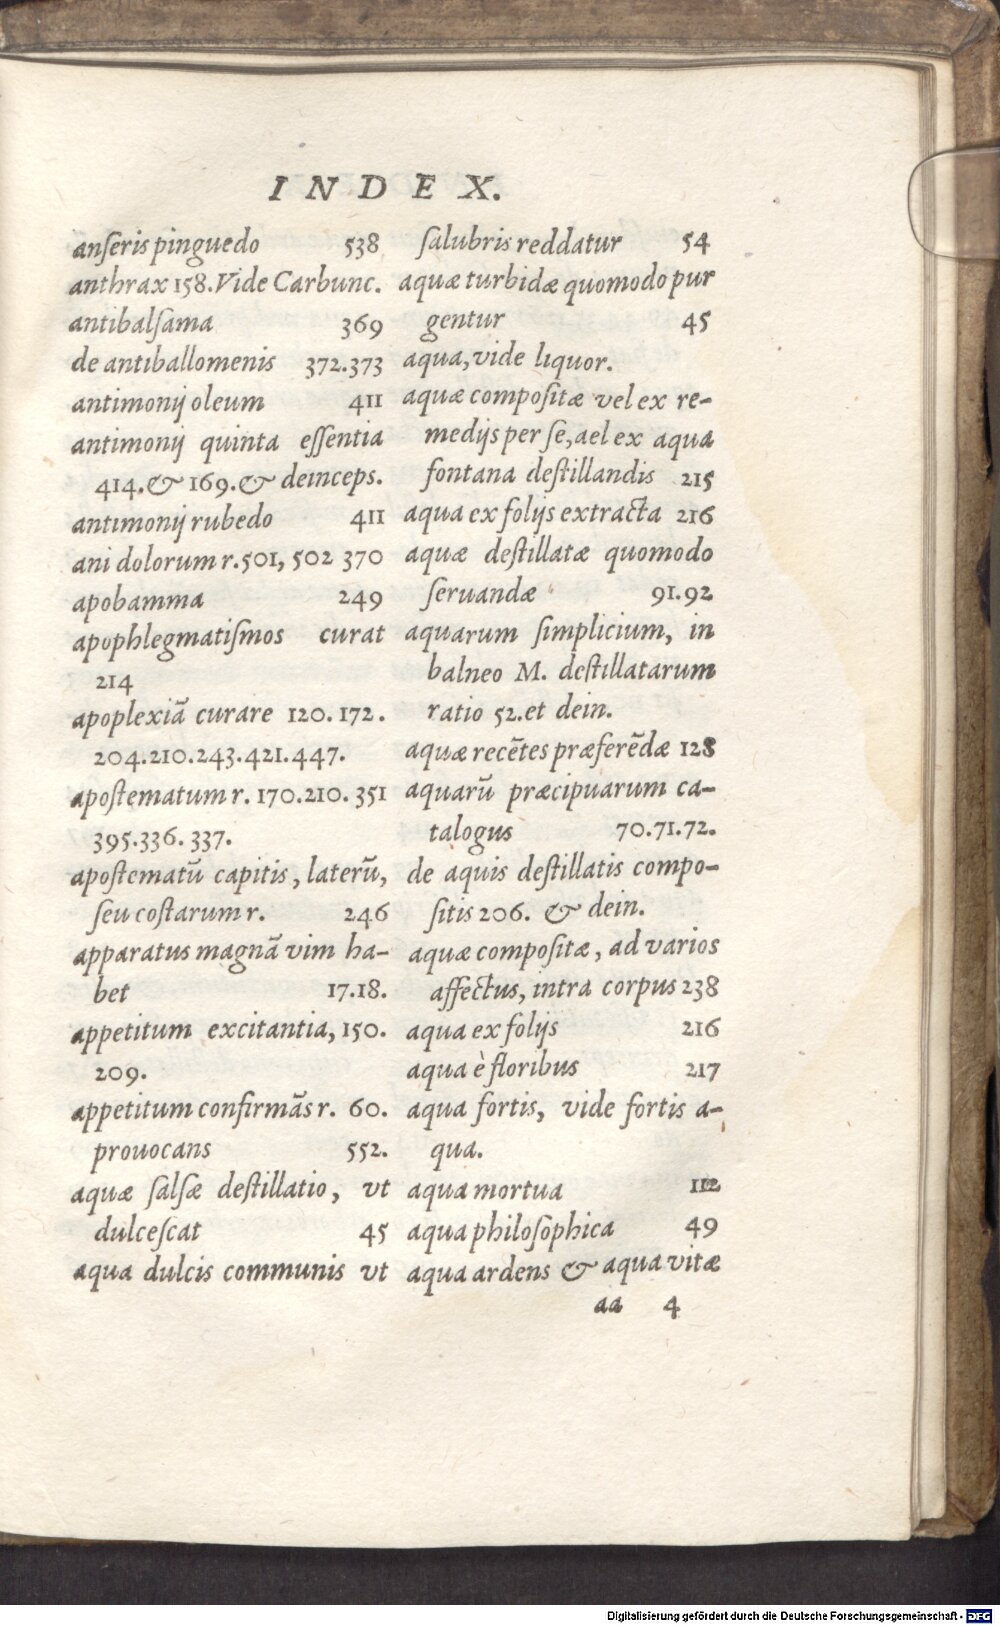 INDEX.
anſeris pinguedo 538
anthrax 158. Vide Carbunc.
antibalſama 369
de antiballomenis 372.373
antimonij oleum 411
antimonij quinta eſſentia
414. & 169. & deinceps.
antimonij rubedo 411
ani dolorum r. 501, 502 370
apobamma 249
apophlegmatiſmos curat
214
apoplexiã curare 120. 172.
204.210.243.421.447.
apoſtematum r. 170.210. 351
395.336. 337.
apoſtematũ capitis, laterũ,
ſeu coſtarum r. 246
apparatus magnã vim ha-
bet 17.18.
appetitum excitantia, 150.
209.
appetitum confirmãs r. 60.
prouocans 552.
aquæ ſalſæ deſtillatio, vt
dulceſcat 45
aqua dulcis communis vt
ſalubris reddatur 54
aquæ turbidæ quomodo pur
gentur 45
aqua, vide liquor.
aquæ compoſitæ vel ex re-
medijs per ſe, ael ex aqua
fontana deſtillandis 215
aqua ex folijs extracta 216
aquæ deſtillatæ quomodo
ſeruandæ 91.92
aquarum ſimplicium, in
balneo M. deſtillatarum
ratio 52. et dein.
aquæ recẽtes præferẽdæ 128
aquarũ præcipuarum ca-
talogus 70.71.72.
de aquis deſtillatis compo-
ſitis 206. & dein.
aquæ compoſitæ, ad varios
affectus, intra corpus 238
aqua ex folijs 216
aqua è floribus 217
aqua fortis, vide fortis a-
qua.
aqua mortua 112
aqua philoſophica 49
aqua ardens & aqua vitæ
aa 4
Digitalisierung gefördert durch die Deutsche Forschungsgemeinschaft - DFG